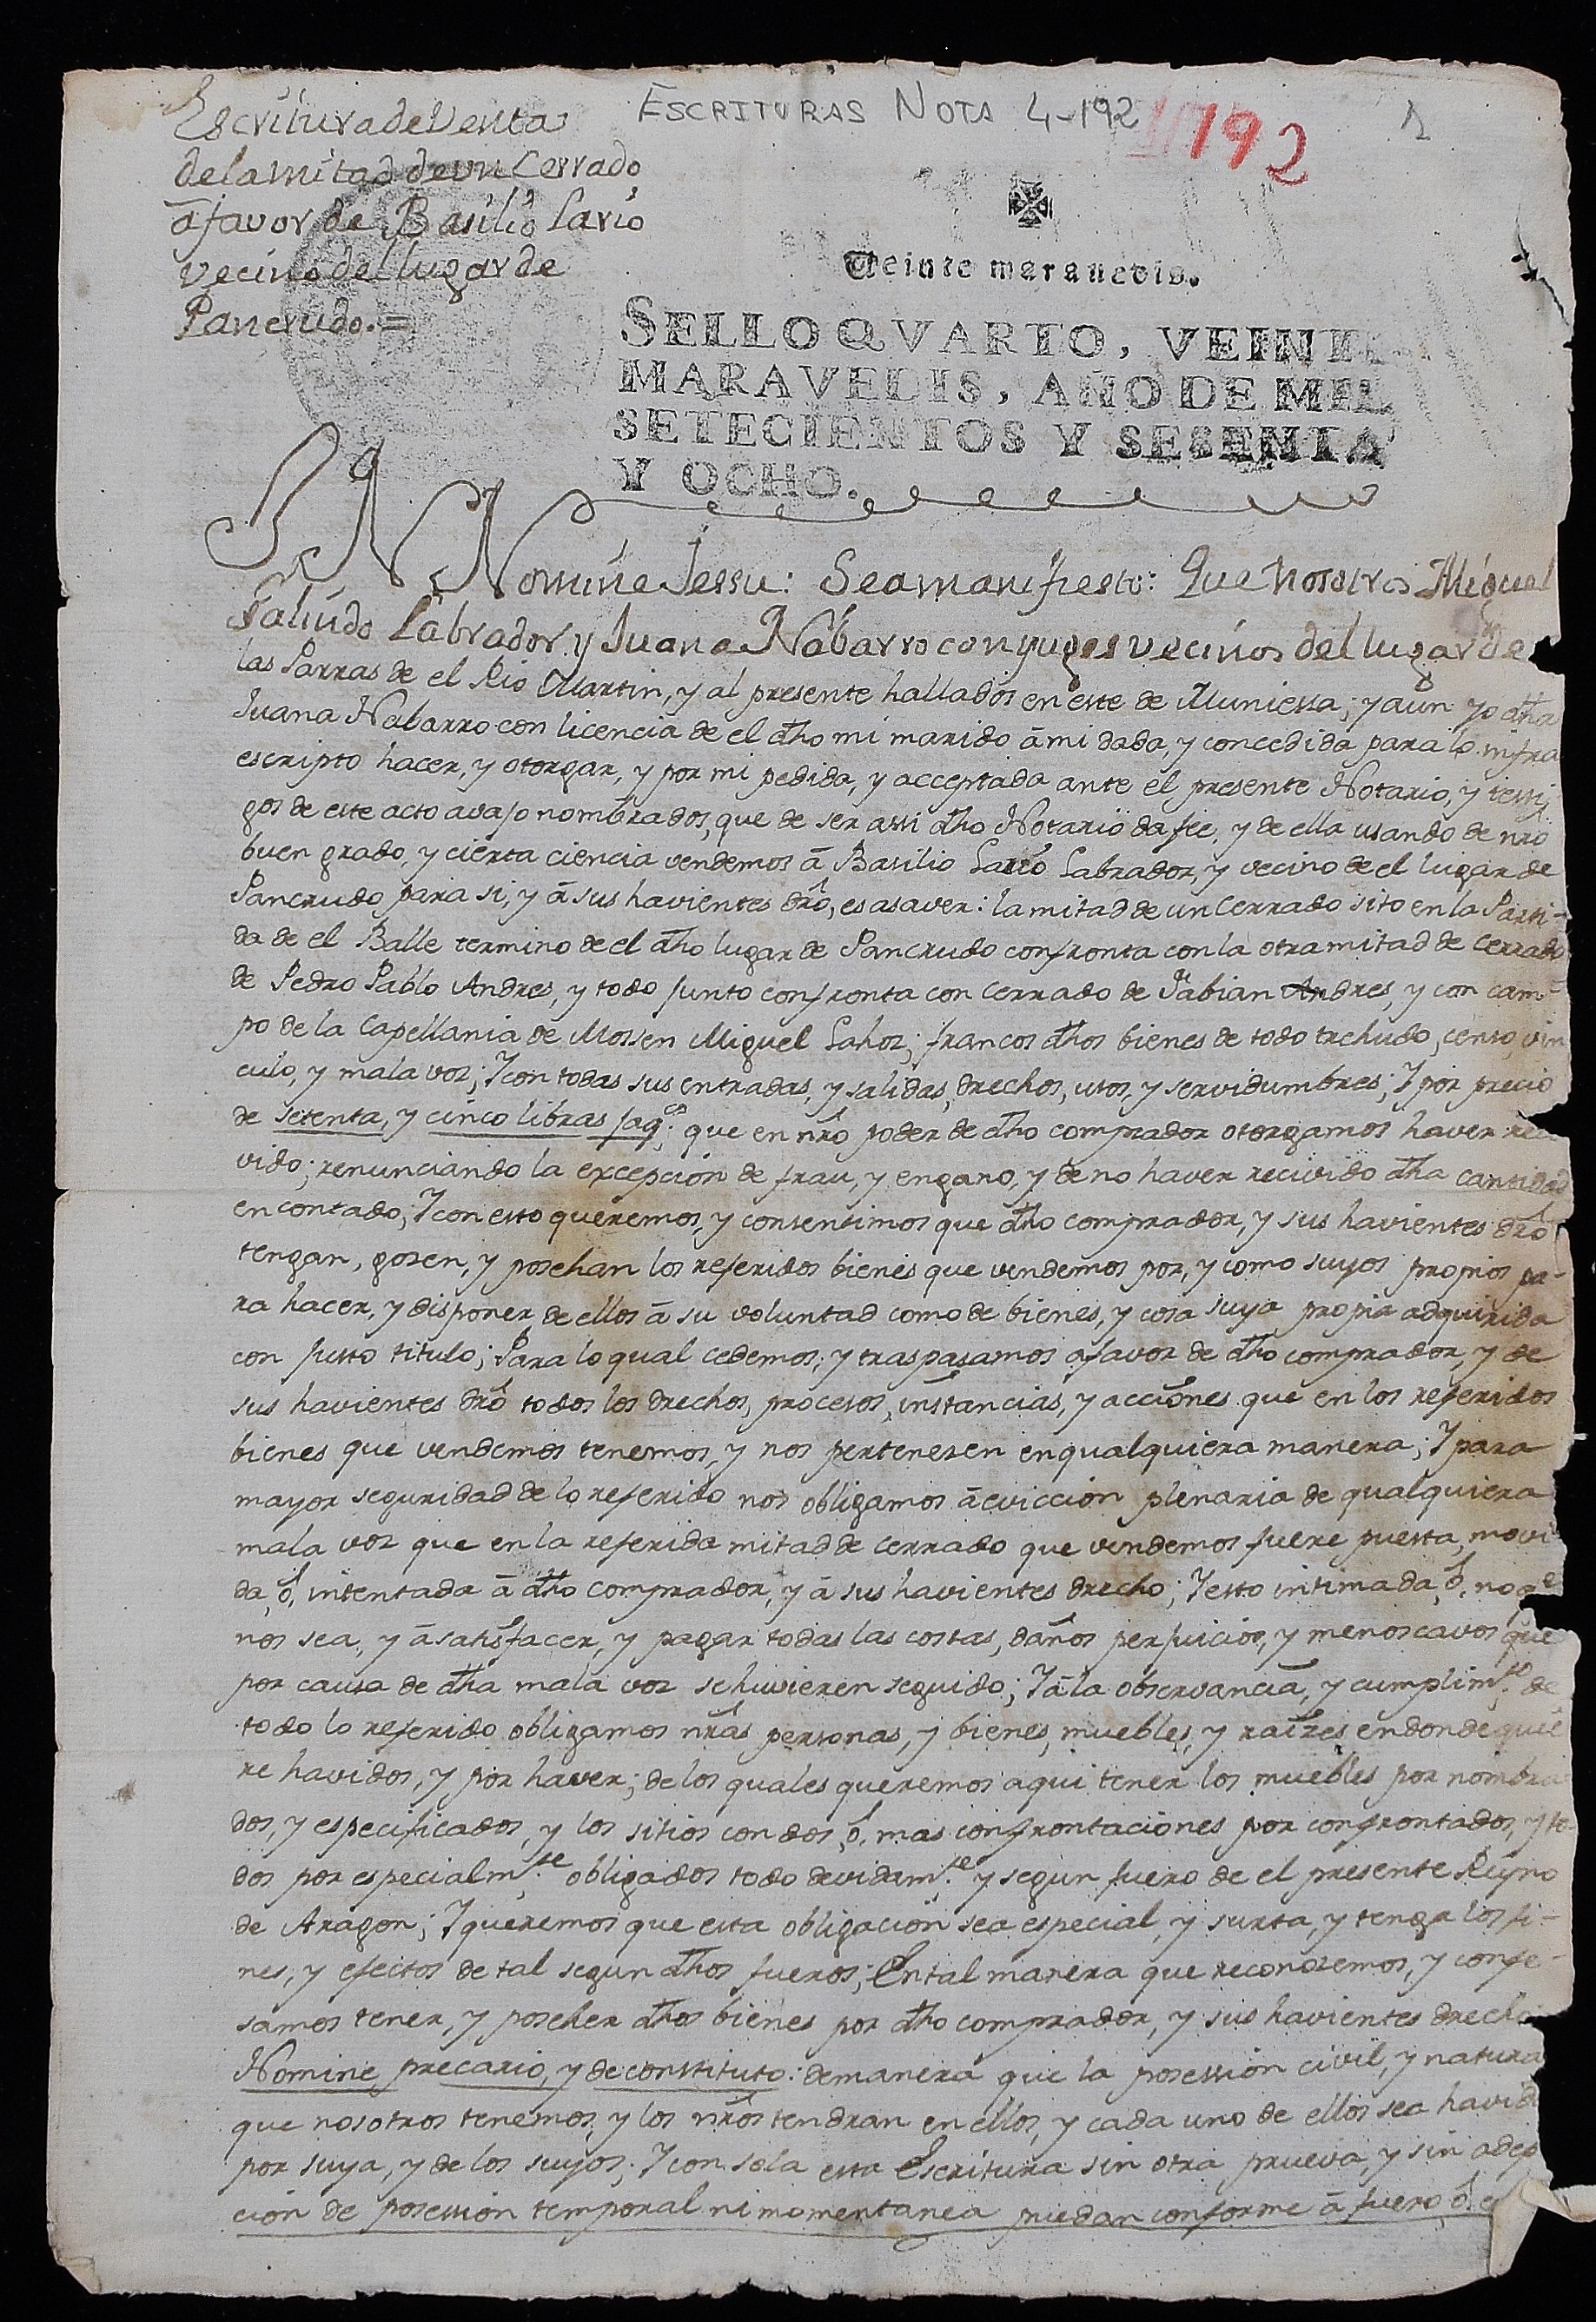 Escritura de Venta
de la mitad de un Cerrado
â favor de Basilio Lario
vecino del lugar de
Pancrudo.=
ESCRITURAS NOTA 4-192
192
1
Veinte maravedis.
SELLO QVARTO, VEINTE
MARAVEDIS, AÑO DE MIL
SETECIENTOS Y SESENTA
Y OCHO.
IN Nomine Jessu: Sea manifiesto: Que Nosotros Miguel
Galindo Labrador y Juana Nabarro conyuges vecinos del lugar de
las Parras de el Rio Martin, y al presente hallados en este de Muniessa; y aun yo dha
Juana Nabarro con licencia de el dho mi marido â mi dada, y concedida para lo infra
escripto hacer, y otorgar, y por mi pedida, y acceptada ante el presente Notario, y testi,
gos de este acto avajo nombrados, que de ser assi dho Notario da fee, y de ella usando de nrõ
buen grado, y cierta ciencia vendemos â Basilio Lario Labrador, y vecino de el lugar de
Pancrudo para si, y â sus havientes drõ, es asaver: la mitad de un Cerrado sito en la Parti-
da de el Balle termino de el dho lugar de Pancrudo confronta con la otra mitad de cerrado
de Pedro Pablo Andres, y todo junto confronta con cerrado de Fabian Andres, y con cam-
po de la Capellania de Mossen Miguel Lahoz; francos dhos bienes de todo trehudo, censo, vin
culo, y mala voz; Y con todas sus entradas, y salidas, drechos, usos, y servidumbres; Y por precio
de setenta, y cinco libras jaq.ˢ que en nrõ poder de dho comprador otorgamos haver reci
vido; renunciando la excepcion de frau, y engano, y de no haver recivido dha cantidad
en contado; Y con esto queremos, y consentimos que dho comprador, y sus havientes drõ
tengan, gozen, y posehan los referidos bienes que vendemos por, y como suyos propios pa-
ra hacer, y disponer de ellos â su voluntad como de bienes, y cosa suya propia adquirida
con justo titulo; Para lo qual cedemos, y traspasamos a favor de dho comprador, y de
sus havientes drõ todos los drechos, procesos, instancias, y acciones que en los referidos
bienes que vendemos tenemos, y nos pertenezen en qualquiera manera; Y para
mayor seguridad de lo referido nos obligamos â eviccion plenaria de qualquiera
mala voz que en la referida mitad de cerrado que vendemos fuere puesta, movi
da, ô, intentada â dho comprador, y â sus havientes drecho; Y esto intimada, ô, no qᵉ
nos sea, y â satisfacer, y pagar todas las costas, daños perjuicios, y menoscavos que
por causa de dha mala voz se huvieren seguido; Y â la observancia, y cumplim.ᵗᵒ de
todo lo referido obligamos nrãs personas, y bienes, muebles, y raízes en donde quie
re havidos, y por haver; de los quales queremos aqui tener los muebles por nombra
dos, y especificados, y los sitios con dos, ô, mas confrontaciones por confrontados, y to
dos por especialm.ᵗᵉ obligados todo devidam.ᵗᵉ y segun fuero de el presente Reyno
de Aragon; Y queremos que esta obligacion sea especial, y surta, y tenga los fi-
nes, y efectos de tal segun dhos fueros; En tal manera que reconozemos, y confe-
samos tener, y poseher dhos bienes por dho comprador, y sus havientes drecho
Nomine precario, y de constituto: de manera que la posession civil, y natura
que nosotros tenemos, y los nrõs tendran en ellos, y cada uno de ellos sea havida
por suya, y de los suyos; Y con sola esta Escritura sin otra prueva, y sin adep
cion de posession temporal ni momentanea puedan conforme â fuero, ô, e